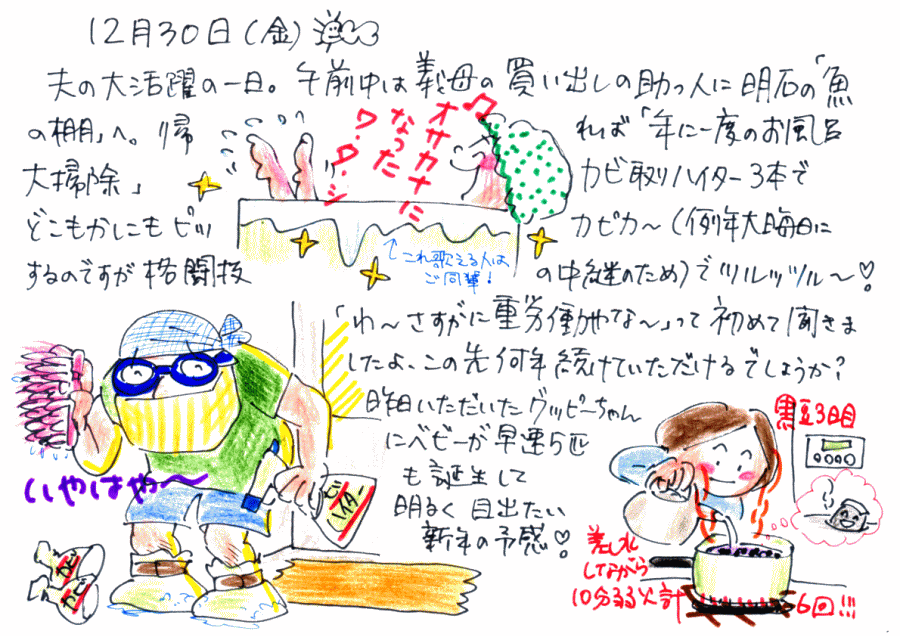 12月30日(金)
夫の大活躍の一日。午前中は義母の買い出しの助っ人に明石の「魚
の棚」へ。帰
れば「年に一度のお風呂
大掃除」
カビ取りハイター3本で
どこもかしこもピッ
カピカ〜(例年大晦日に
するのですが格闘技
の中継のため)でツルッツル〜♡
オサカナに
なった
ワ・タ・シ
これ歌える人は
ご同輩!
「わ〜さすがに重労働やな〜」って初めて聞きま
したよ、この先何年続けていただけるでしょうか?
昨日いただいたグッピーちゃん
にベビーが早速5匹
も誕生して
明るく目出たい
新年の予感♡
いやはや〜
カビ
ハイター
カビ
カビ
黒豆3日目
差し水
しながら
10分弱火計
6回!!!